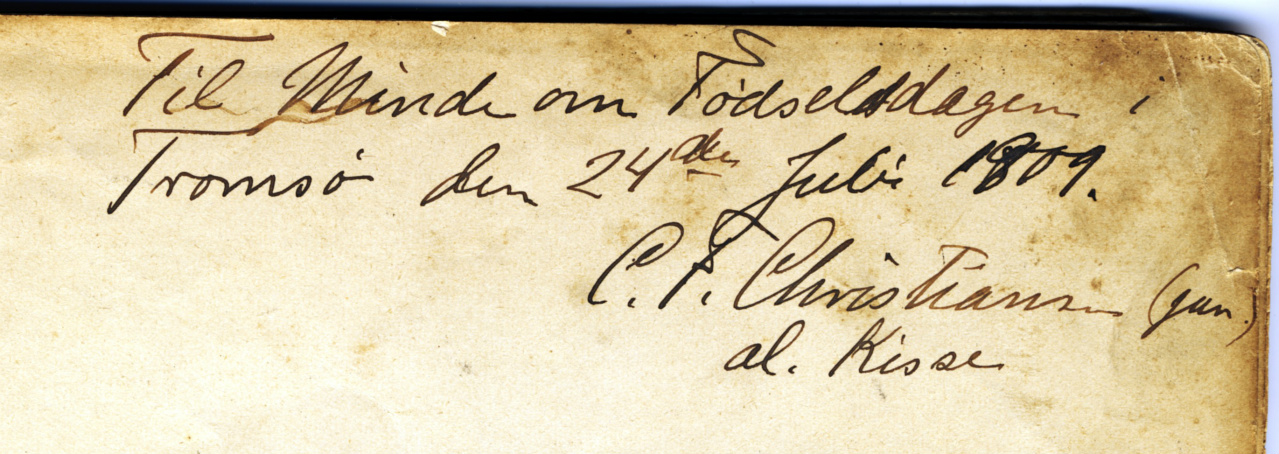 Til Minde om Fødselsdagen i
Tromsø den 24de Juli
C. F. Christiansen (jun.)
al. Kisse